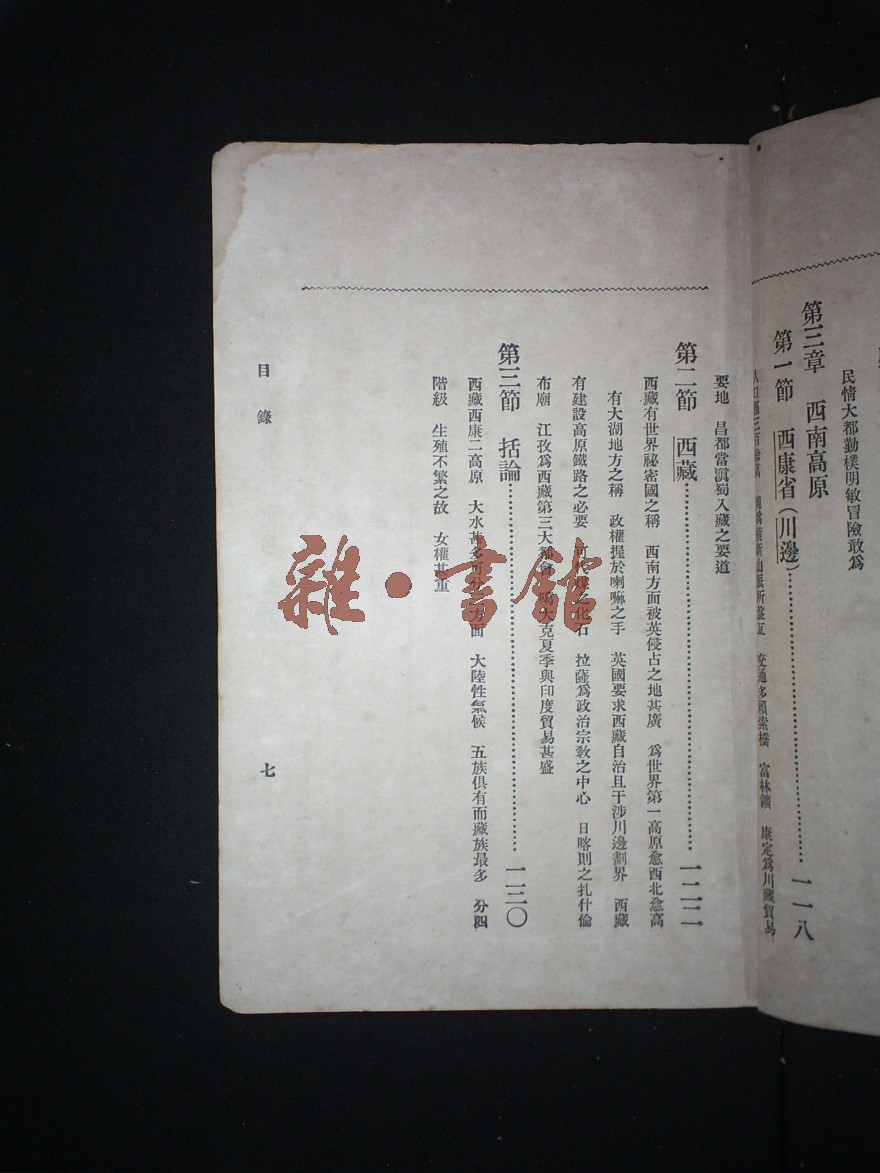 民情大都勤樸明敏冒險敢爲
第三章　西南高原
第一節　西康省(川邊)……一一八
交通多賴索橋　富林鑛　康定爲川藏貿易
要地　昌都當滇蜀入藏之要道
第二節　西藏……一二二
西藏有世界祕密國之稱　西南方面被英侵占之地甚廣　爲世界第一高原愈西北愈高
有大湖地方之稱　政權握於喇嘛之手　英國要求西藏自治且干涉川邊劃界　西藏
有建設高原鐵路之必要　之化石　拉薩爲政治宗教之中心　日喀則之扎什倫
布廟　江孜爲西藏第三大都會　大克夏季與印度貿易甚盛
第三節　括論……一三〇
西藏西康二高原　大水甚多可分　方面　大陸性氣候　五族俱有而藏族最多　分四
階級　生殖不繁之故　女權甚重
目錄
七
雜·書館